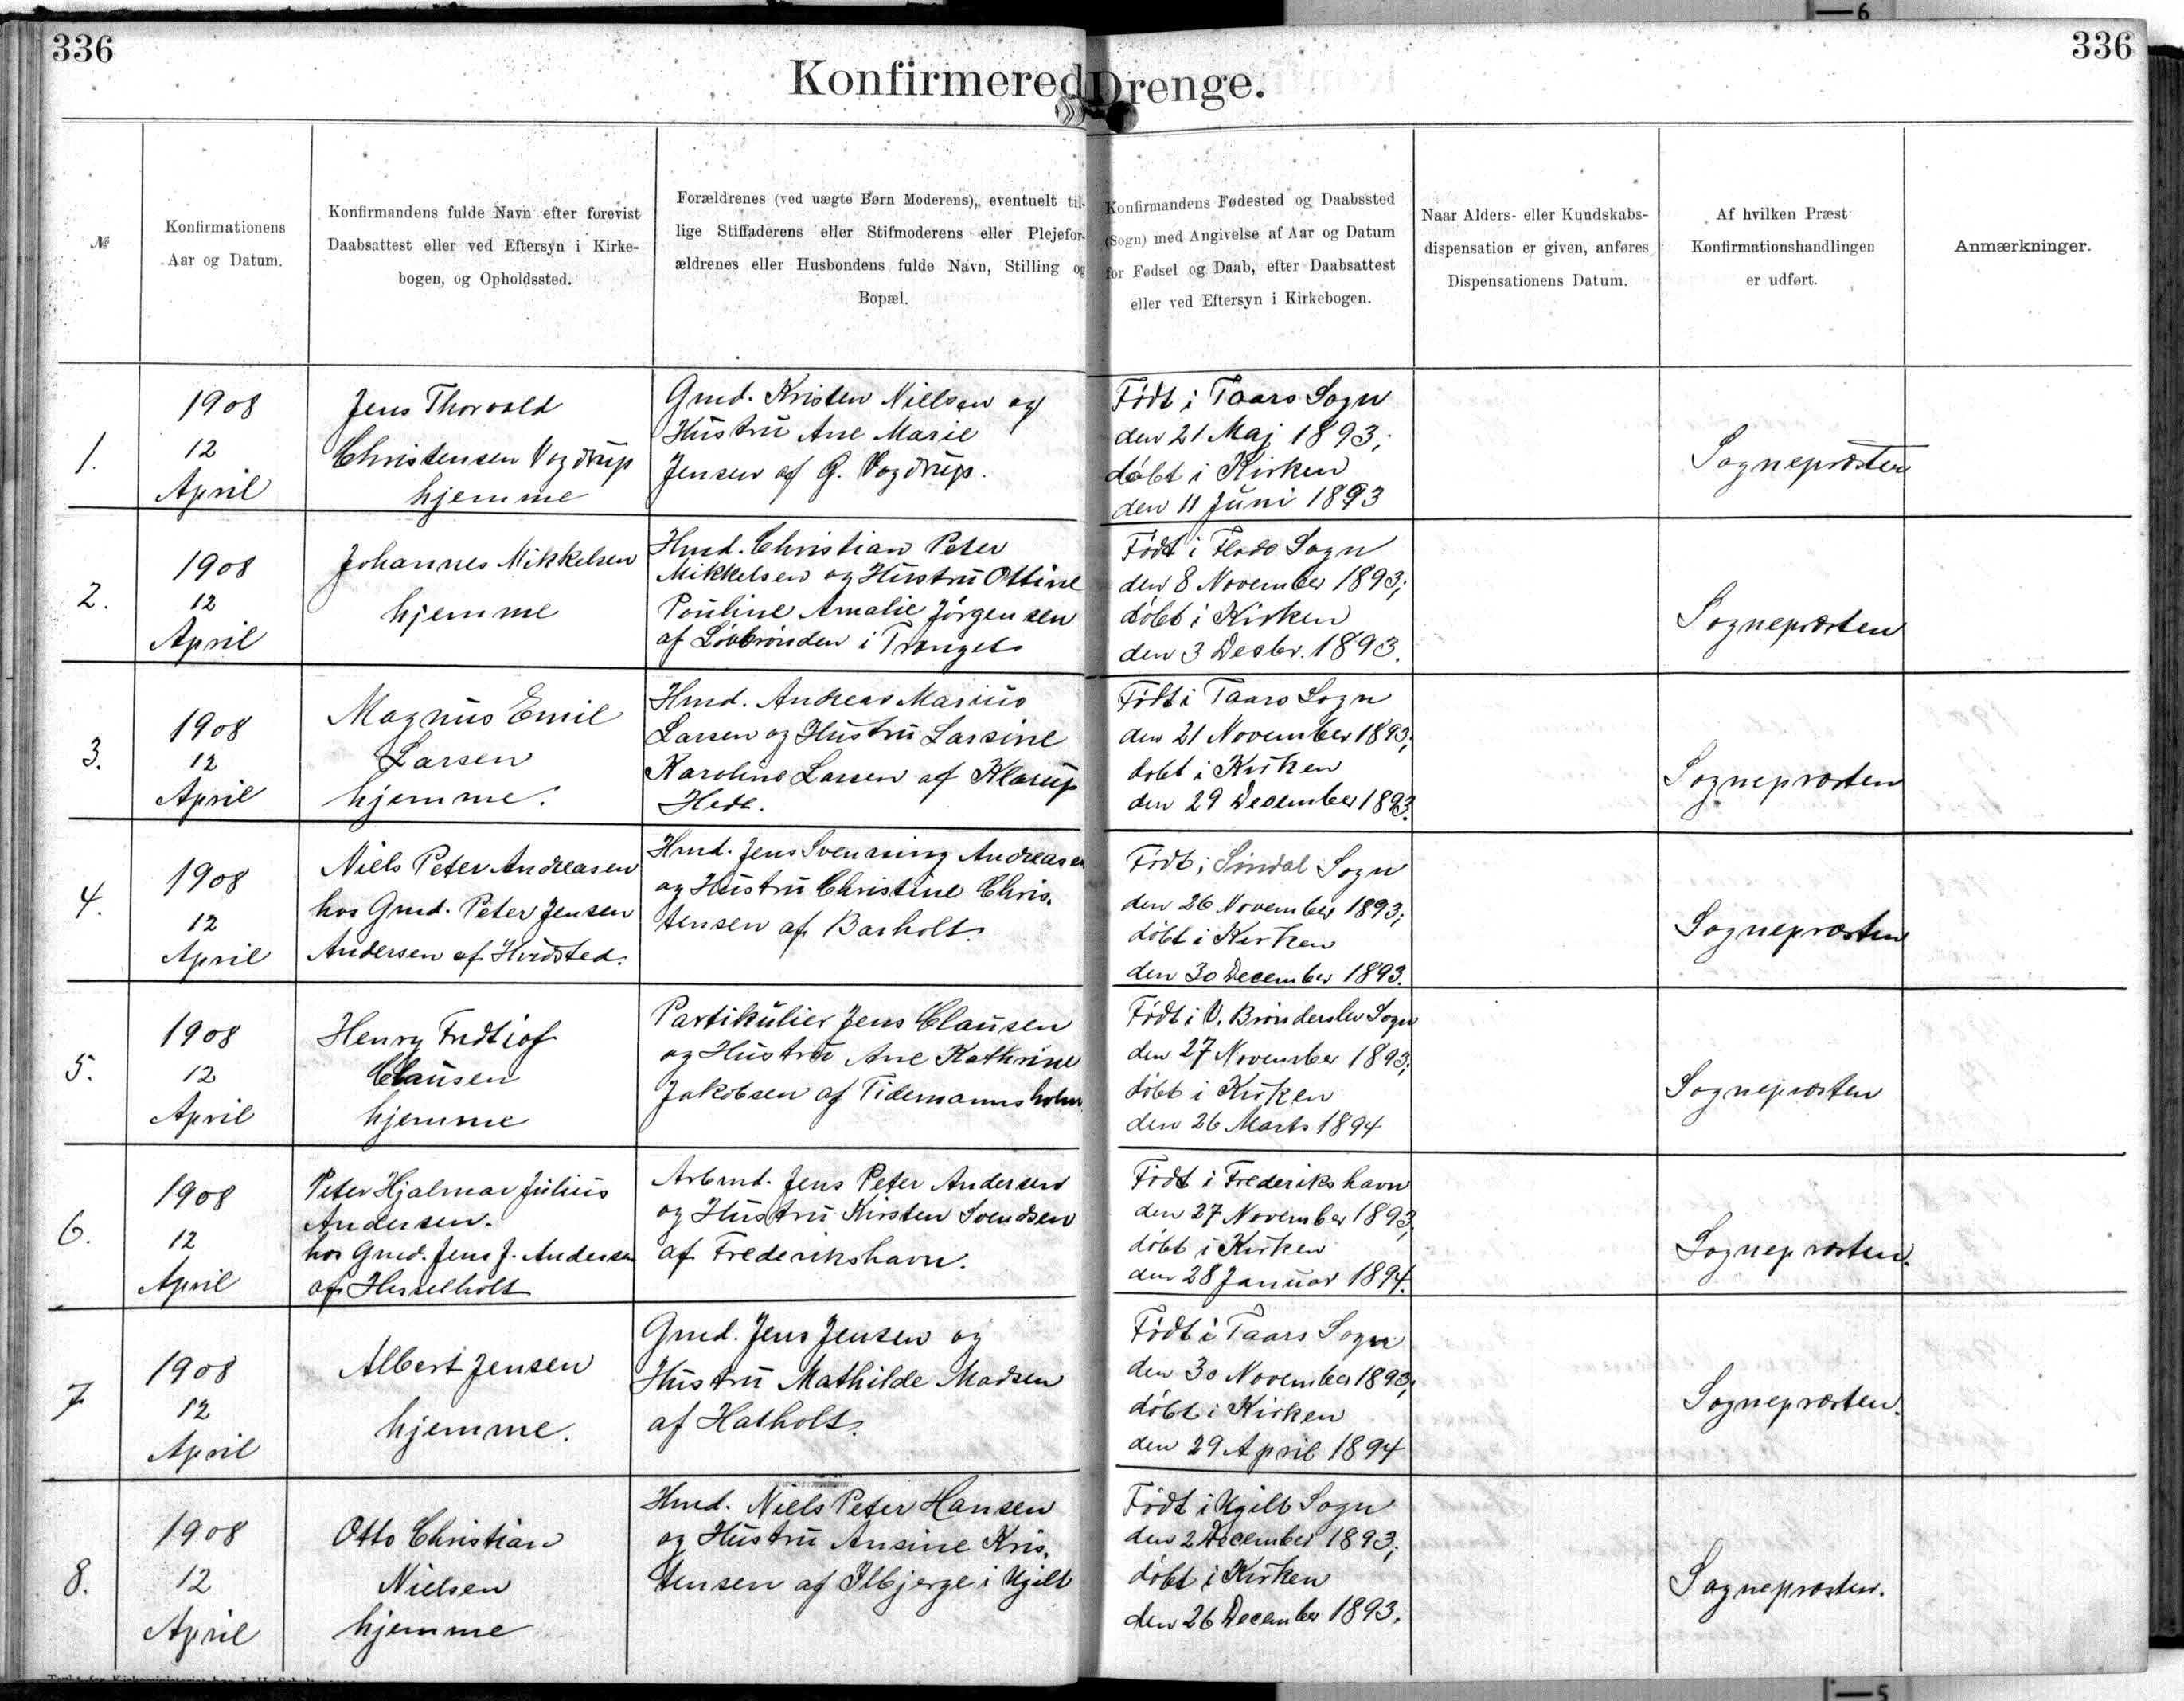 336
336
Konfirmered Drenge.
№
Konfirmationens
Aar og Datum.
Konfirmandens fulde Navn efter forevist
Daabsattest eller ved Eftersyn i Kirke-
bogen, og Opholdssted.
Forældrenes (ved uægte Børn Moderens), eventuelt til-
lige Stiffaderens eller Stifmoderens eller Plejefor-
ældrenes eller Husbondens fulde Navn, Stilling og
Bopæl.
Konfirmandens Fødested og Daabssted
(Sogn) med Angivelse af Aar og Datum
for Fødsel og Daab, efter Daabsattest
eller ved Eftersyn i Kirkebogen.
Naar Alders- eller Kundskabs-
dispensation er given, anføres
Dispensationens Datum.
Af hvilken Præst
Konfirmationshandlingen
er udført.
Anmærkninger.
1.
1908
12
April
Jens Thorvald
Christensen Vogdrup
hjemme
Gmd. Kristen Nielsen og
Hustru Ane Marie
Jensen af G. Vogdrup.
Født i Taars Sogn
den 21 Maj 1893;
døbt i Kirken
den 11 Juni 1893
Sognepræsten
2.
1908
12
April
Johannes Mikkelsen
hjemme
Hmd. Christian Peter
Mikkelsen og Hustru Ottine
Pouline Amalie Jørgensen
af Løvbrønden i Tranget
Født i Flade Sogn
den 8 November 1893;
døbt i Kirken
den 3 Desbr. 1893.
Sognepræsten
3.
1908
12
April
Magnus Emil
Larsen
hjemme.
Hmd. Andreas Marius
Larsen og Hustru Larsine
Karoline Larsen af Klarup
Hede.
Født i Taars Sogn
den 21 November 1893;
døbt i Kirken
den 29 December 1893.
Sognepræsten
4.
1908
12
April
Niels Peter Andreasen
hos Gmd. Peter Jensen
Andersen af Hvidsted.
Hmd. Jens Svenning Andreasen
og Hustru Christine Chris-
tensen af Barholt.
Født i Sindal Sogn
den 26 November 1893;
døbt i Kirken
den 30 December 1893.
Sognepræsten
5.
1908
12
April
Henry Fridtjof
Clausen
hjemme
Partikulier Jens Clausen
og Hustru Ane Kathrine
Jakobsen af Tidemannsholm
Født i V. Brønderslev Sogn
den 27 November 1893;
døbt i Kirken
den 26 Marts 1894
Sognepræsten
6.
1908
12
April
Peter Hjalmar Julius
Andersen.
hos Gmd. Jens J. Andersen
af Hesselholt
Arbmd. Jens Peter Andersen
og Hustru Kirsten Svendsen
af Frederikshavn.
Født i Frederikshavn
den 27 November 1893;
døbt i Kirken
den 28 Januar 1894.
Sognepræsten.
7
1908
12
April
Albert Jensen
hjemme.
Gmd. Jens Jensen og
Hustru Mathilde Madsen
af Hatholt.
Født i Taars Sogn
den 30 November 1893;
døbt i Kirken
den 29 April 1894
Sognepræsten.
8.
1908
12
April
Otto Christian
Nielsen
hjemme
Hmd. Niels Peter Hansen
og Hustru Ansine Kris-
tensen af Ilbjerge i Ugilt
Født i Ugilt Sogn
den 2 December 1893;
døbt i Kirken
den 26 December 1893.
Sognepræsten.
6
5